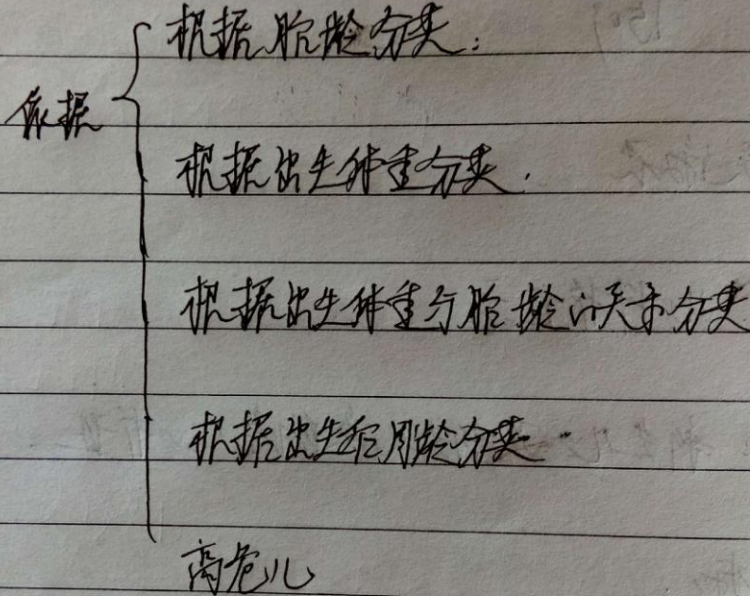 根据胎龄分类：
依据
根据出生体重分类.
根据出生体重与胎龄的关系分类
根据出生后周龄分类
高危儿